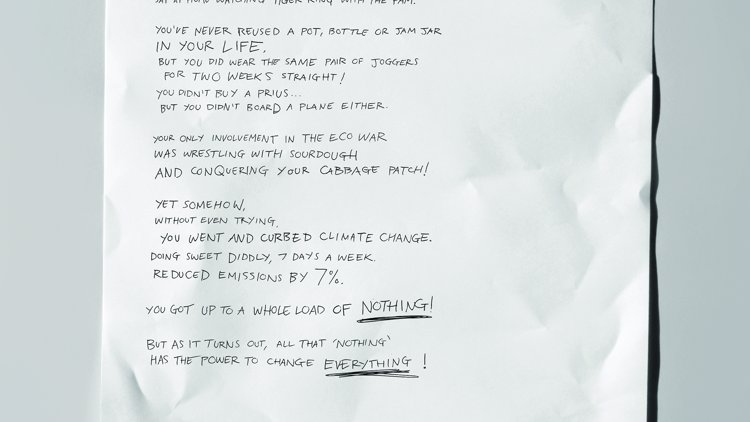 SAT AT HOME WATCHING TIGER KING WITH THE FAM.
YOU'VE NEVER REUSED A POT, BOTTLE OR JAM JAR
IN YOUR LIFE,
BUT YOU DID WEAR THE SAME PAIR OF JOGGERS
FOR TWO WEEKS STRAIGHT!
YOU DIDN'T BUY A PRIUS...
BUT YOU DIDN'T BOARD A PLANE EITHER.
YOUR ONLY INVOLVEMENT IN THE ECO WAR
WAS WRESTLING WITH SOURDOUGH
AND CONQUERING YOUR CABBAGE PATCH!
YET SOMEHOW,
WITHOUT EVEN TRYING,
YOU WENT AND CURBED CLIMATE CHANGE.
DOING SWEET DIDDLY, 7 DAYS A WEEK.
REDUCED EMISSIONS BY 7%.
YOU GOT UP TO A WHOLE LOAD OF NOTHING!
BUT AS IT TURNS OUT, ALL THAT 'NOTHING'
HAS THE POWER TO CHANGE EVERYTHING!